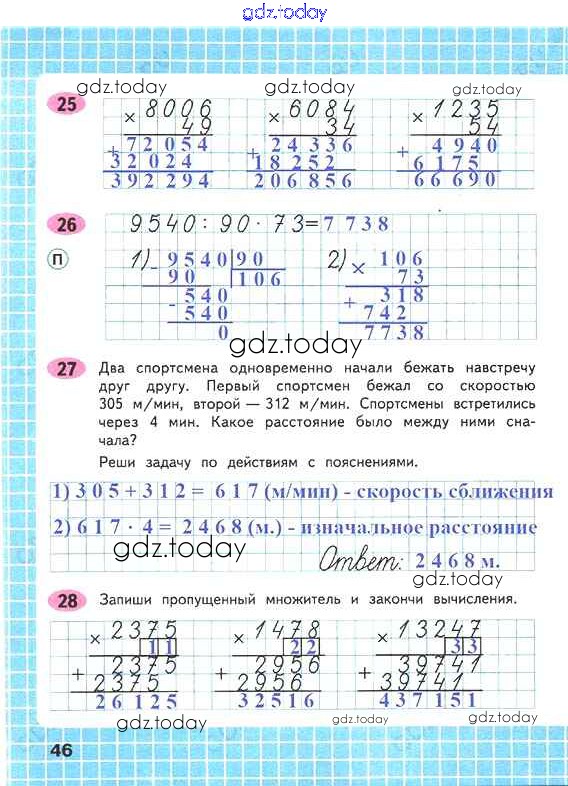 gdz.today
gdz.today gdz.today gdz.today
25
× 8006 × 6084 × 1235
49 34 54
+ 72054 + 24336 + 4940
32024 18252 6175
392294 206856 66690
26 9540 : 90 · 73 = 7738
П 1) - 9540 | 90 2) × 106
90 106 73
- 540 + 318
540 742
0 7738
gdz.today
27 Два спортсмена одновременно начали бежать навстречу
друг другу. Первый спортсмен бежал со скоростью
305 м/мин, второй — 312 м/мин. Спортсмены встретились
через 4 мин. Какое расстояние было между ними сна-
чала?
Реши задачу по действиям с пояснениями.
1) 305 + 312 = 617 (м/мин) - скорость сближения
2) 617 · 4 = 2468 (м.) - изначальное расстояние
gdz.today
Ответ: 2468 м.
gdz.today
28 Запиши пропущенный множитель и закончи вычисления.
× 2375 × 1478 × 13247
11 22 33
+ 2375 + 2956 + 39741
2375 2956 39741
26125 32516 437151
gdz.today gdz.today gdz.today
46